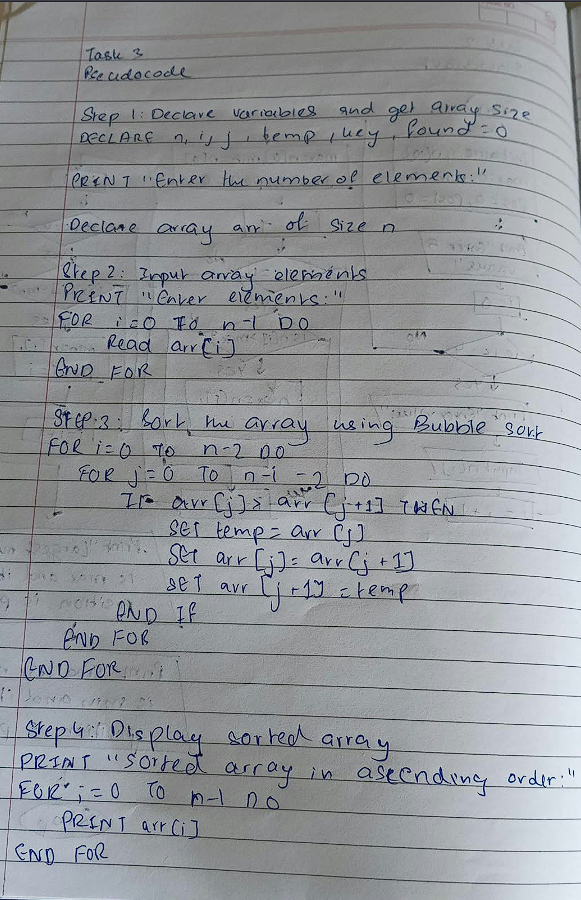 Task 3
Pseudocode
Step 1: Declare variables and get array size
DECLARE n, i, j, temp, key, found = 0
PRINT "Enter the number of elements:"
Declare array arr of size n
Step 2: Input array elements
PRINT "Enter elements:"
FOR i=0 TO n-1 DO
Read arr[i]
END FOR
STEP 3: Sort the array using Bubble sort
FOR i=0 TO n-2 DO
FOR j=0 TO n-i-2 DO
IF arr[j]> arr[j+1] THEN
SET temp= arr[j]
SET arr[j]= arr[j+1]
SET arr[j+1] = temp
END IF
END FOR
END FOR
Step 4: Display sorted array
PRINT "Sorted array in ascending order:"
FOR i=0 TO n-1 DO
PRINT arr[i]
END FOR